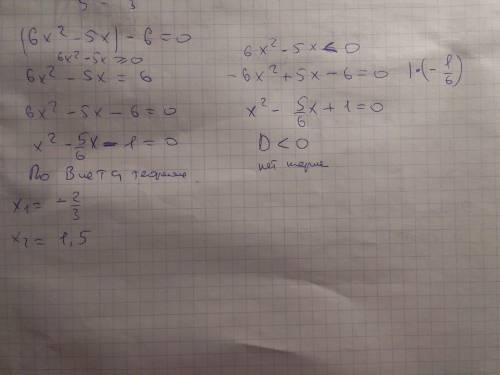 |6x² - 5x| - 6 = 0
6x² - 5x ≥ 0
6x² - 5x = 6
6x² - 5x - 6 = 0
x² - 5/6x - 1 = 0
По Виета теореме
x₁ = - 2/3
x₂ = 1,5
6x² - 5x < 0
-6x² + 5x - 6 = 0 |·(-1/6)
x² - 5/6x + 1 = 0
D < 0
нет